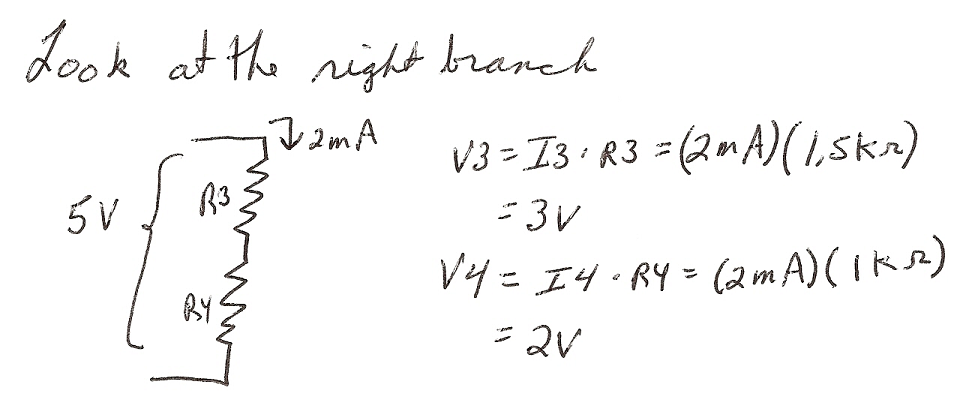 Look at the right branch
2mA
5V
R3
R4
V3 = I3 · R3 = (2mA)(1.5kΩ)
= 3V
V4 = I4 · R4 = (2mA)(1kΩ)
= 2V